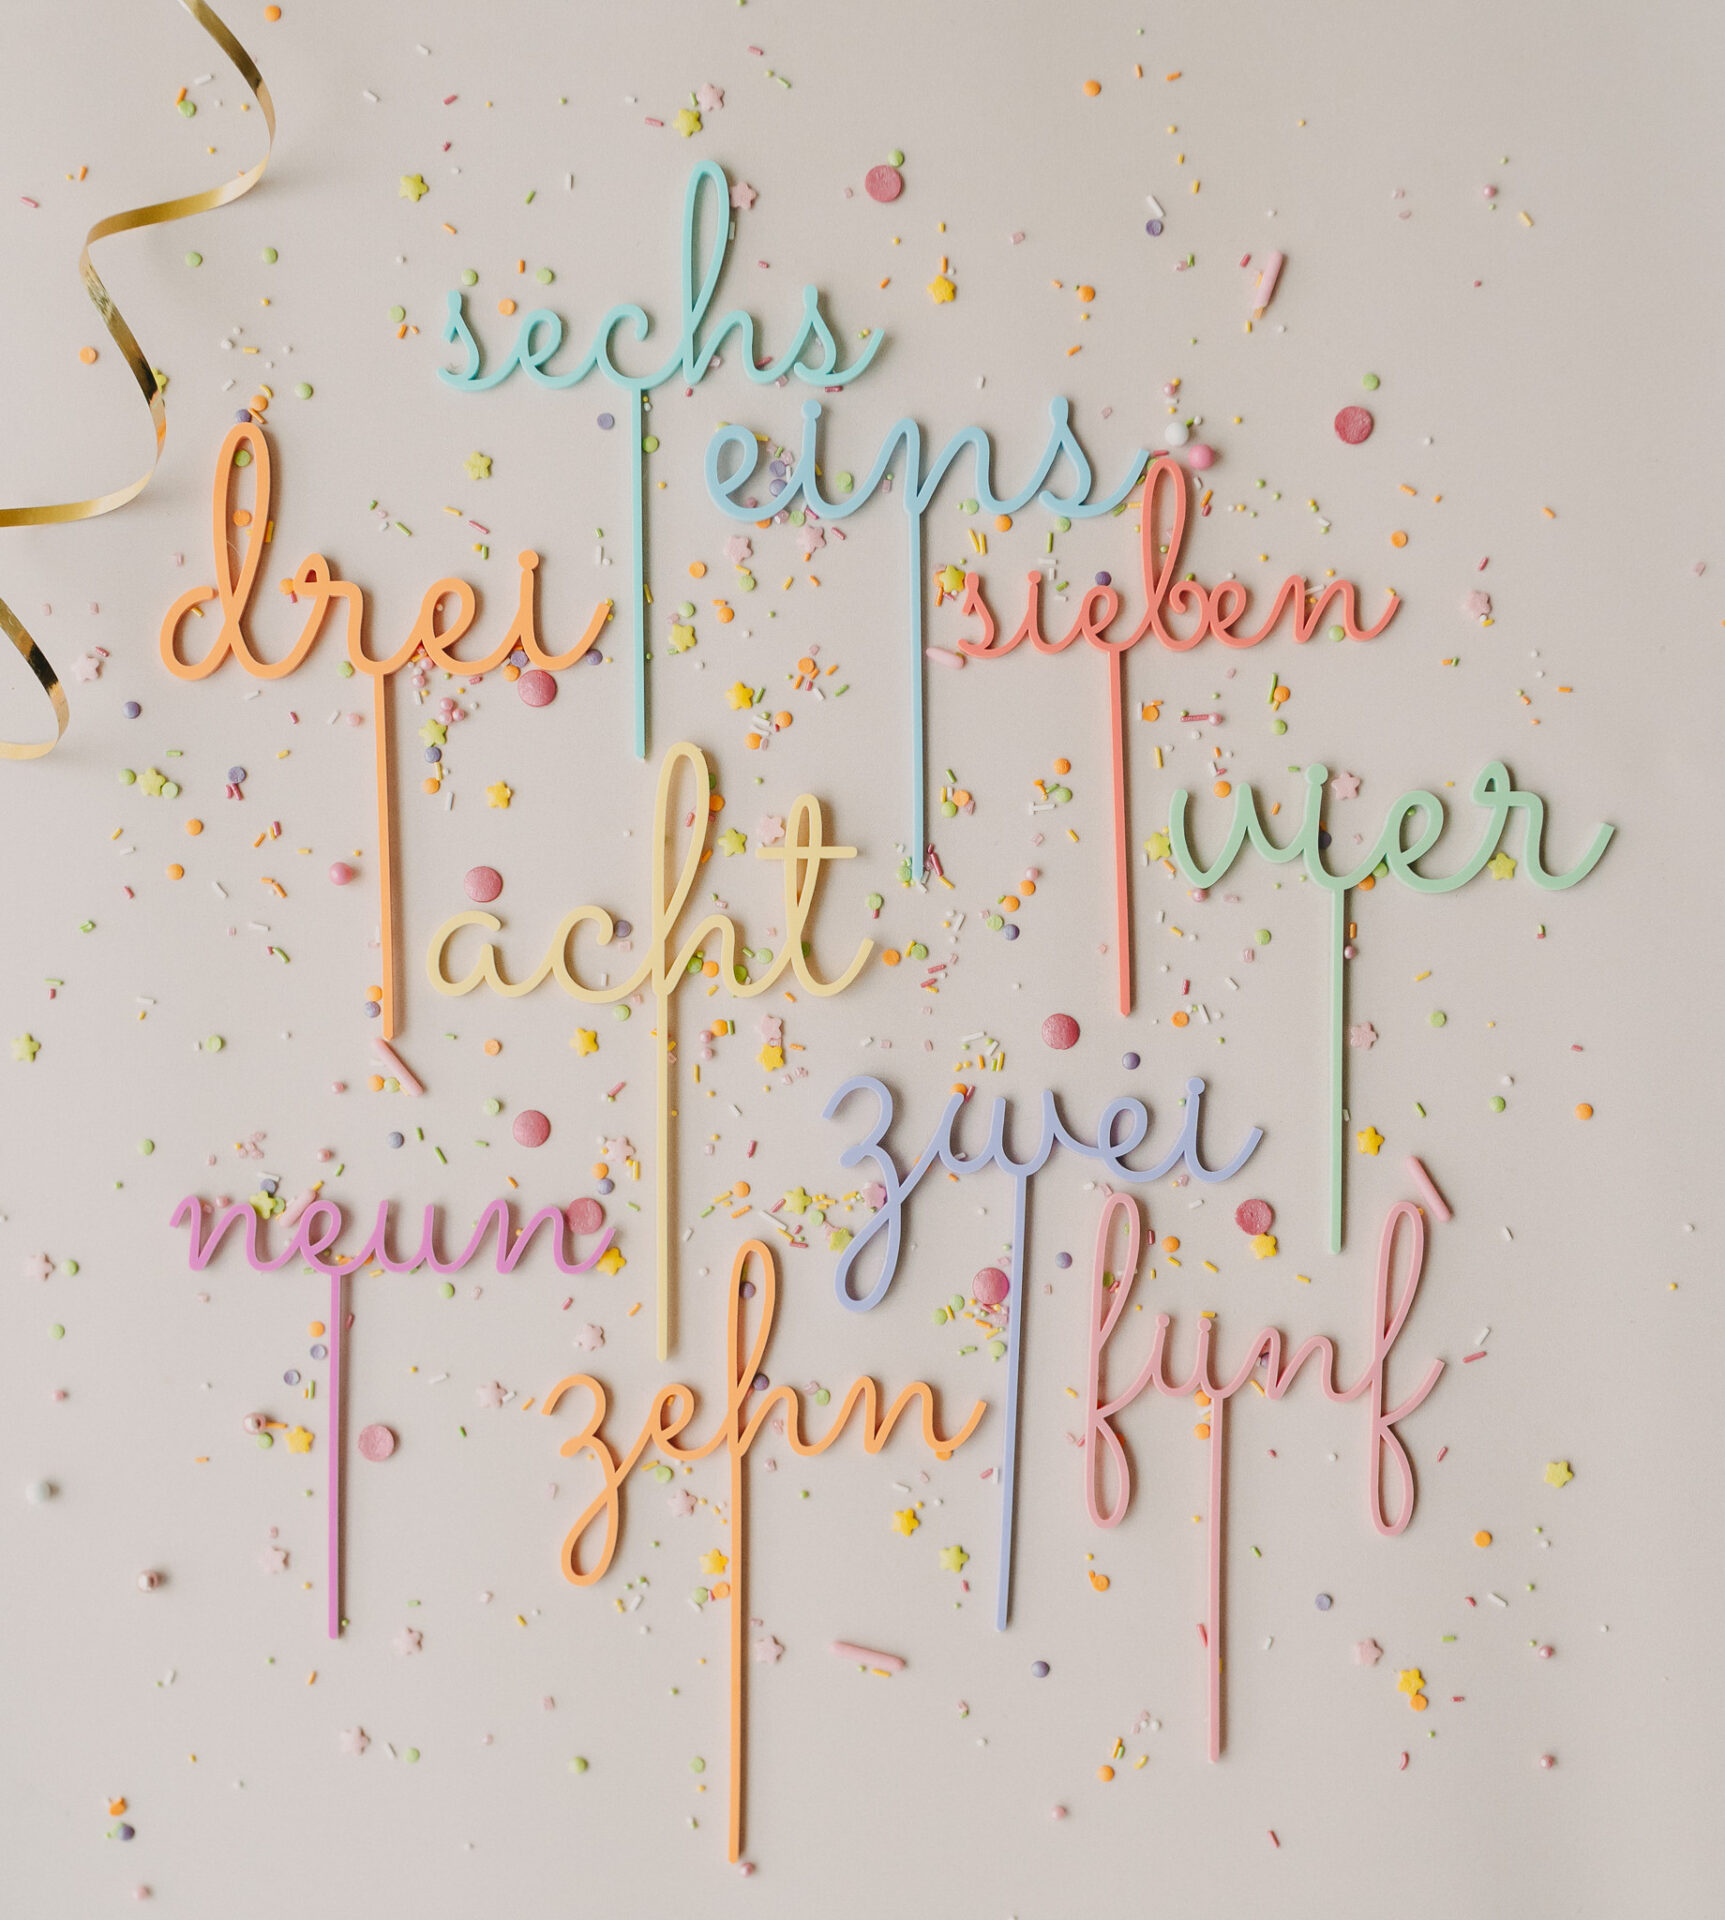 sechs
eins
drei
sieben
vier
acht
zwei
neun
fünf
zehn